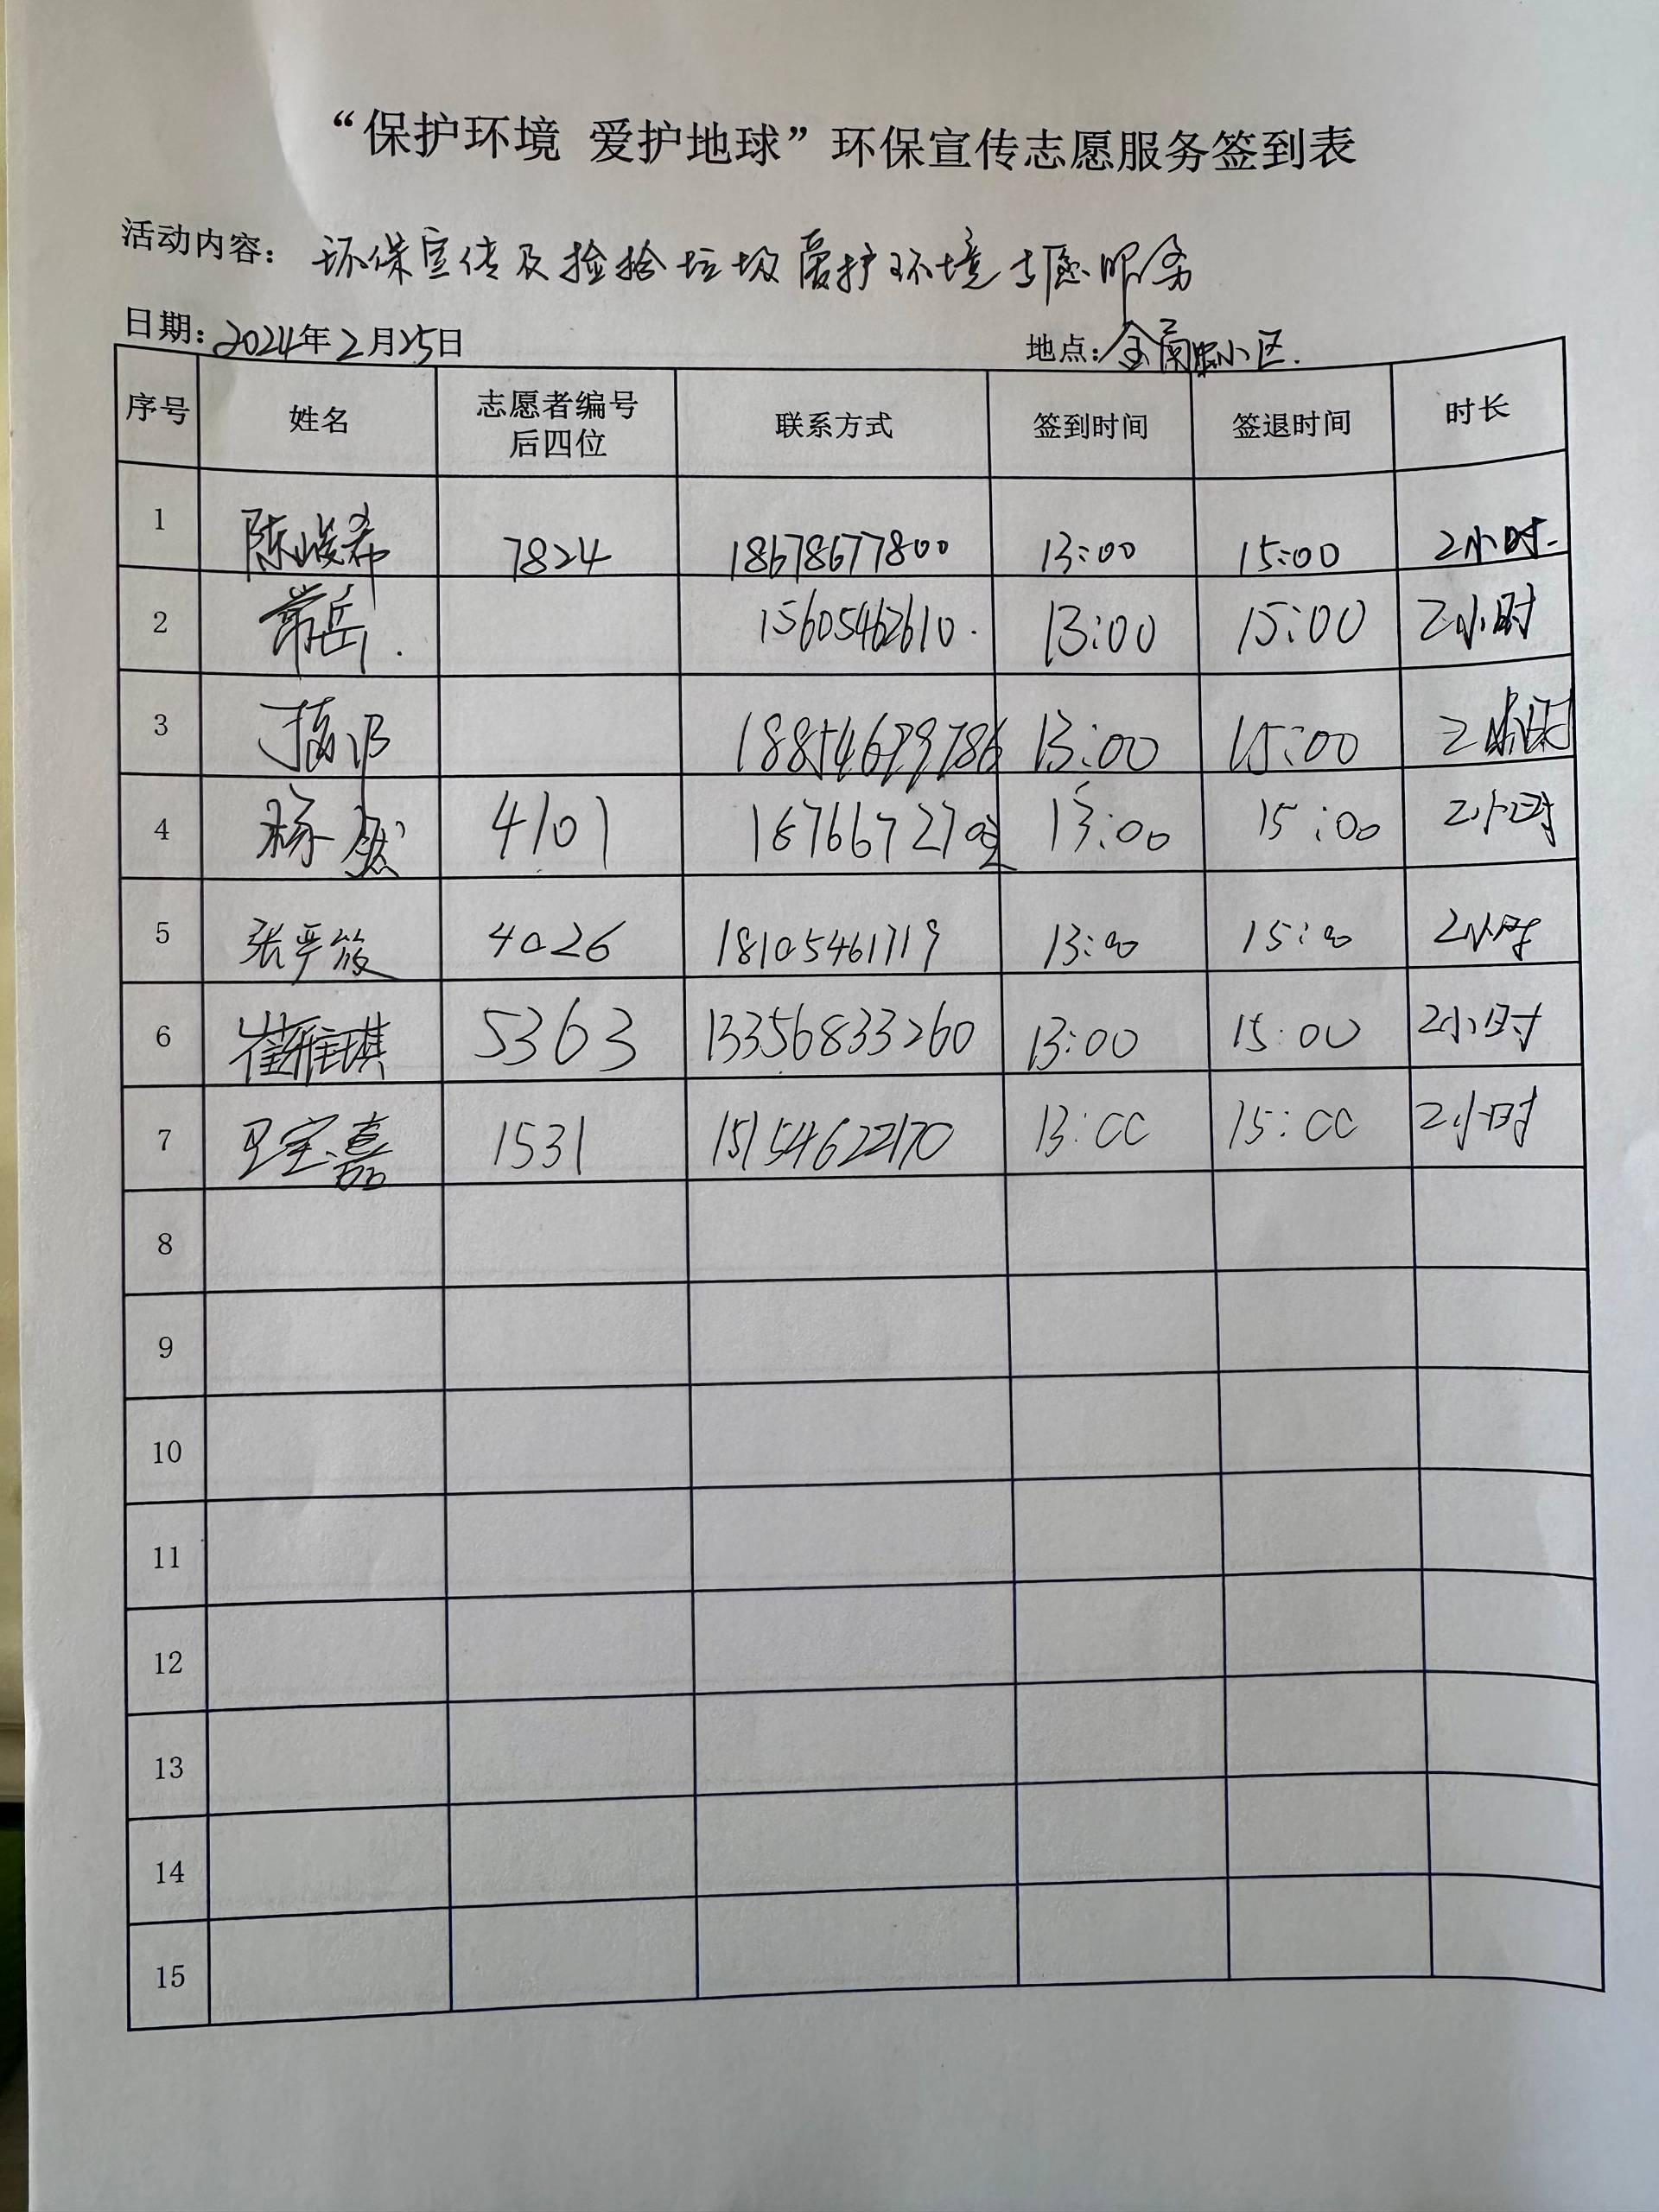 “保护环境 爱护地球”环保宣传志愿服务签到表
活动内容: 环保宣传及捡拾垃圾爱护环境志愿服务
日期: 2024年2月25日 地点: 小区.
序号 姓名 志愿者编号后四位 联系方式 签到时间 签退时间 时长
1 陈峻希 7824 18678677800 13:00 15:00 2小时.
2 常岳. 15605462610. 13:00 15:00 2小时
3 13:00 15:00 2小时
4 杨 4101 13:00 15:00 2小时
5 张严筱 4026 18105461719 13:00 15:00 2小时
6 崔雅琪 5363 13356833260 13:00 15:00 2小时
7 卫宝嘉 1531 15154622170 13:00 15:00 2小时
8
9
10
11
12
13
14
15